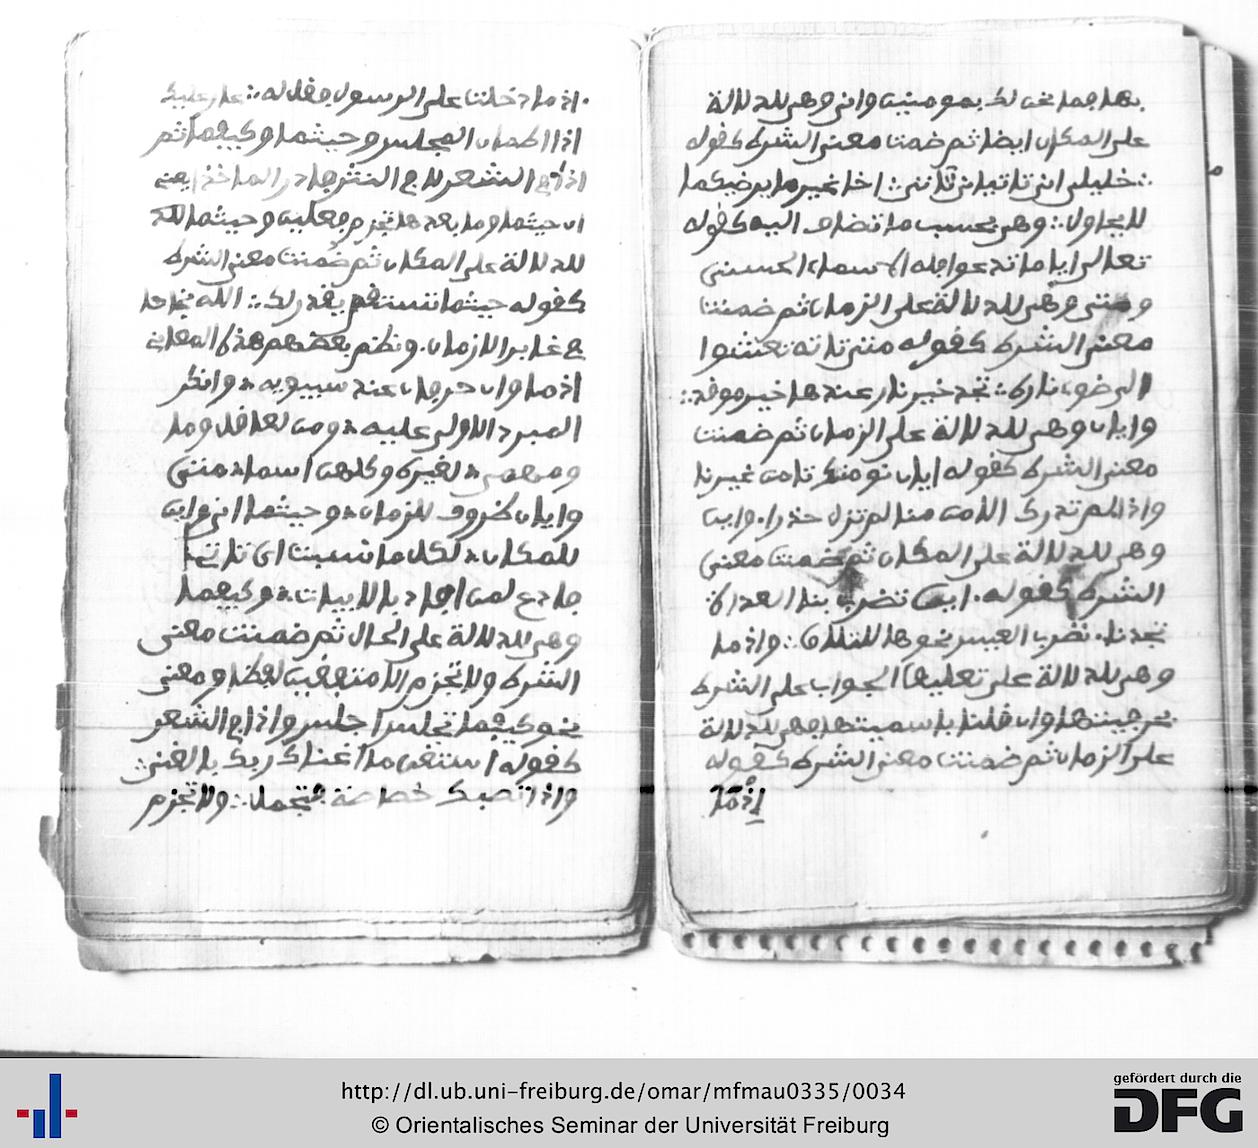 بها فما نحن لك بمومنين واني وهي للدلالة
على المكان ايضا ثم ضمنت معنى الشرط كقوله
خليلي اني تاتياني تاتيا اخا غير ما يرضيكما
لا يحاول وهي بحسب ما تضاف اليه كقوله
تعالى ايا ما تدعوا فله الاسماء الحسنى
ومتى وهي للدلالة على الزمان ثم ضمنت
معنى الشرط كقوله متى تاته تعشوا
الى ضوء ناره تجد خير نار عندها خير موقد
وايان وهي للدلالة على الزمان ثم ضمنت
معنى الشرط كقوله ايان نومنك تامن غيرنا
واذا لم تدرك الامن منا لم تزل حذرا واين
وهي للدلالة على المكان ثم ضمنت معنى
الشرط كقوله اين تضرب بنا العداة
تجدنا نضرب العيس نحوها للتلاق واذما
وهي للدلالة على تعليق الجواب على الشرط
بحرفيتها وان قلنا باسميتها فهي للدلالة
على الزمان ثم ضمنت معنى الشرط كقوله
اذما
اذ ما دخلت على الرسول فقل له حقا عليك
اذا اطمان المجلس وحيثما وكيفما ثم
اذا في الشعر لا في النثر فادر الماخذ يعني
ان حيثما وما بعدها تجزم فعلين وحيثما
للدلالة على المكان ثم ضمنت معنى الشرط
كقوله حيثما تستقم يقدر لك الله نجاحا
في غابر الازمان ونظم بعضهم هذه المعاني
اذ ما وان حرفان عند سيبويه وانكر
المبرد الاولى عليه ومن لعاقل وما
ومهمى لغيره وكلهن اسما متى
وايان ظروف للزمان وحيثما اني واين
للمكان لكل ما نسبت اي تاتي
فادع لمن افاد بالابيات وكيفما
وهي للدلالة على الحال ثم ضمنت معنى
الشرط ولا تجزم الا متفقين لفظا ومعنى
نحو كيفما تجلس اجلس واذا في الشعر
كقوله استغن ما اغناك ربك بالغنى
واذا تصبك خصاصة فتجمل ولا تجزم
http://dl.ub.uni-freiburg.de/omar/mfmau0335/0034
© Orientalisches Seminar der Universität Freiburg
gefördert durch die
DFG